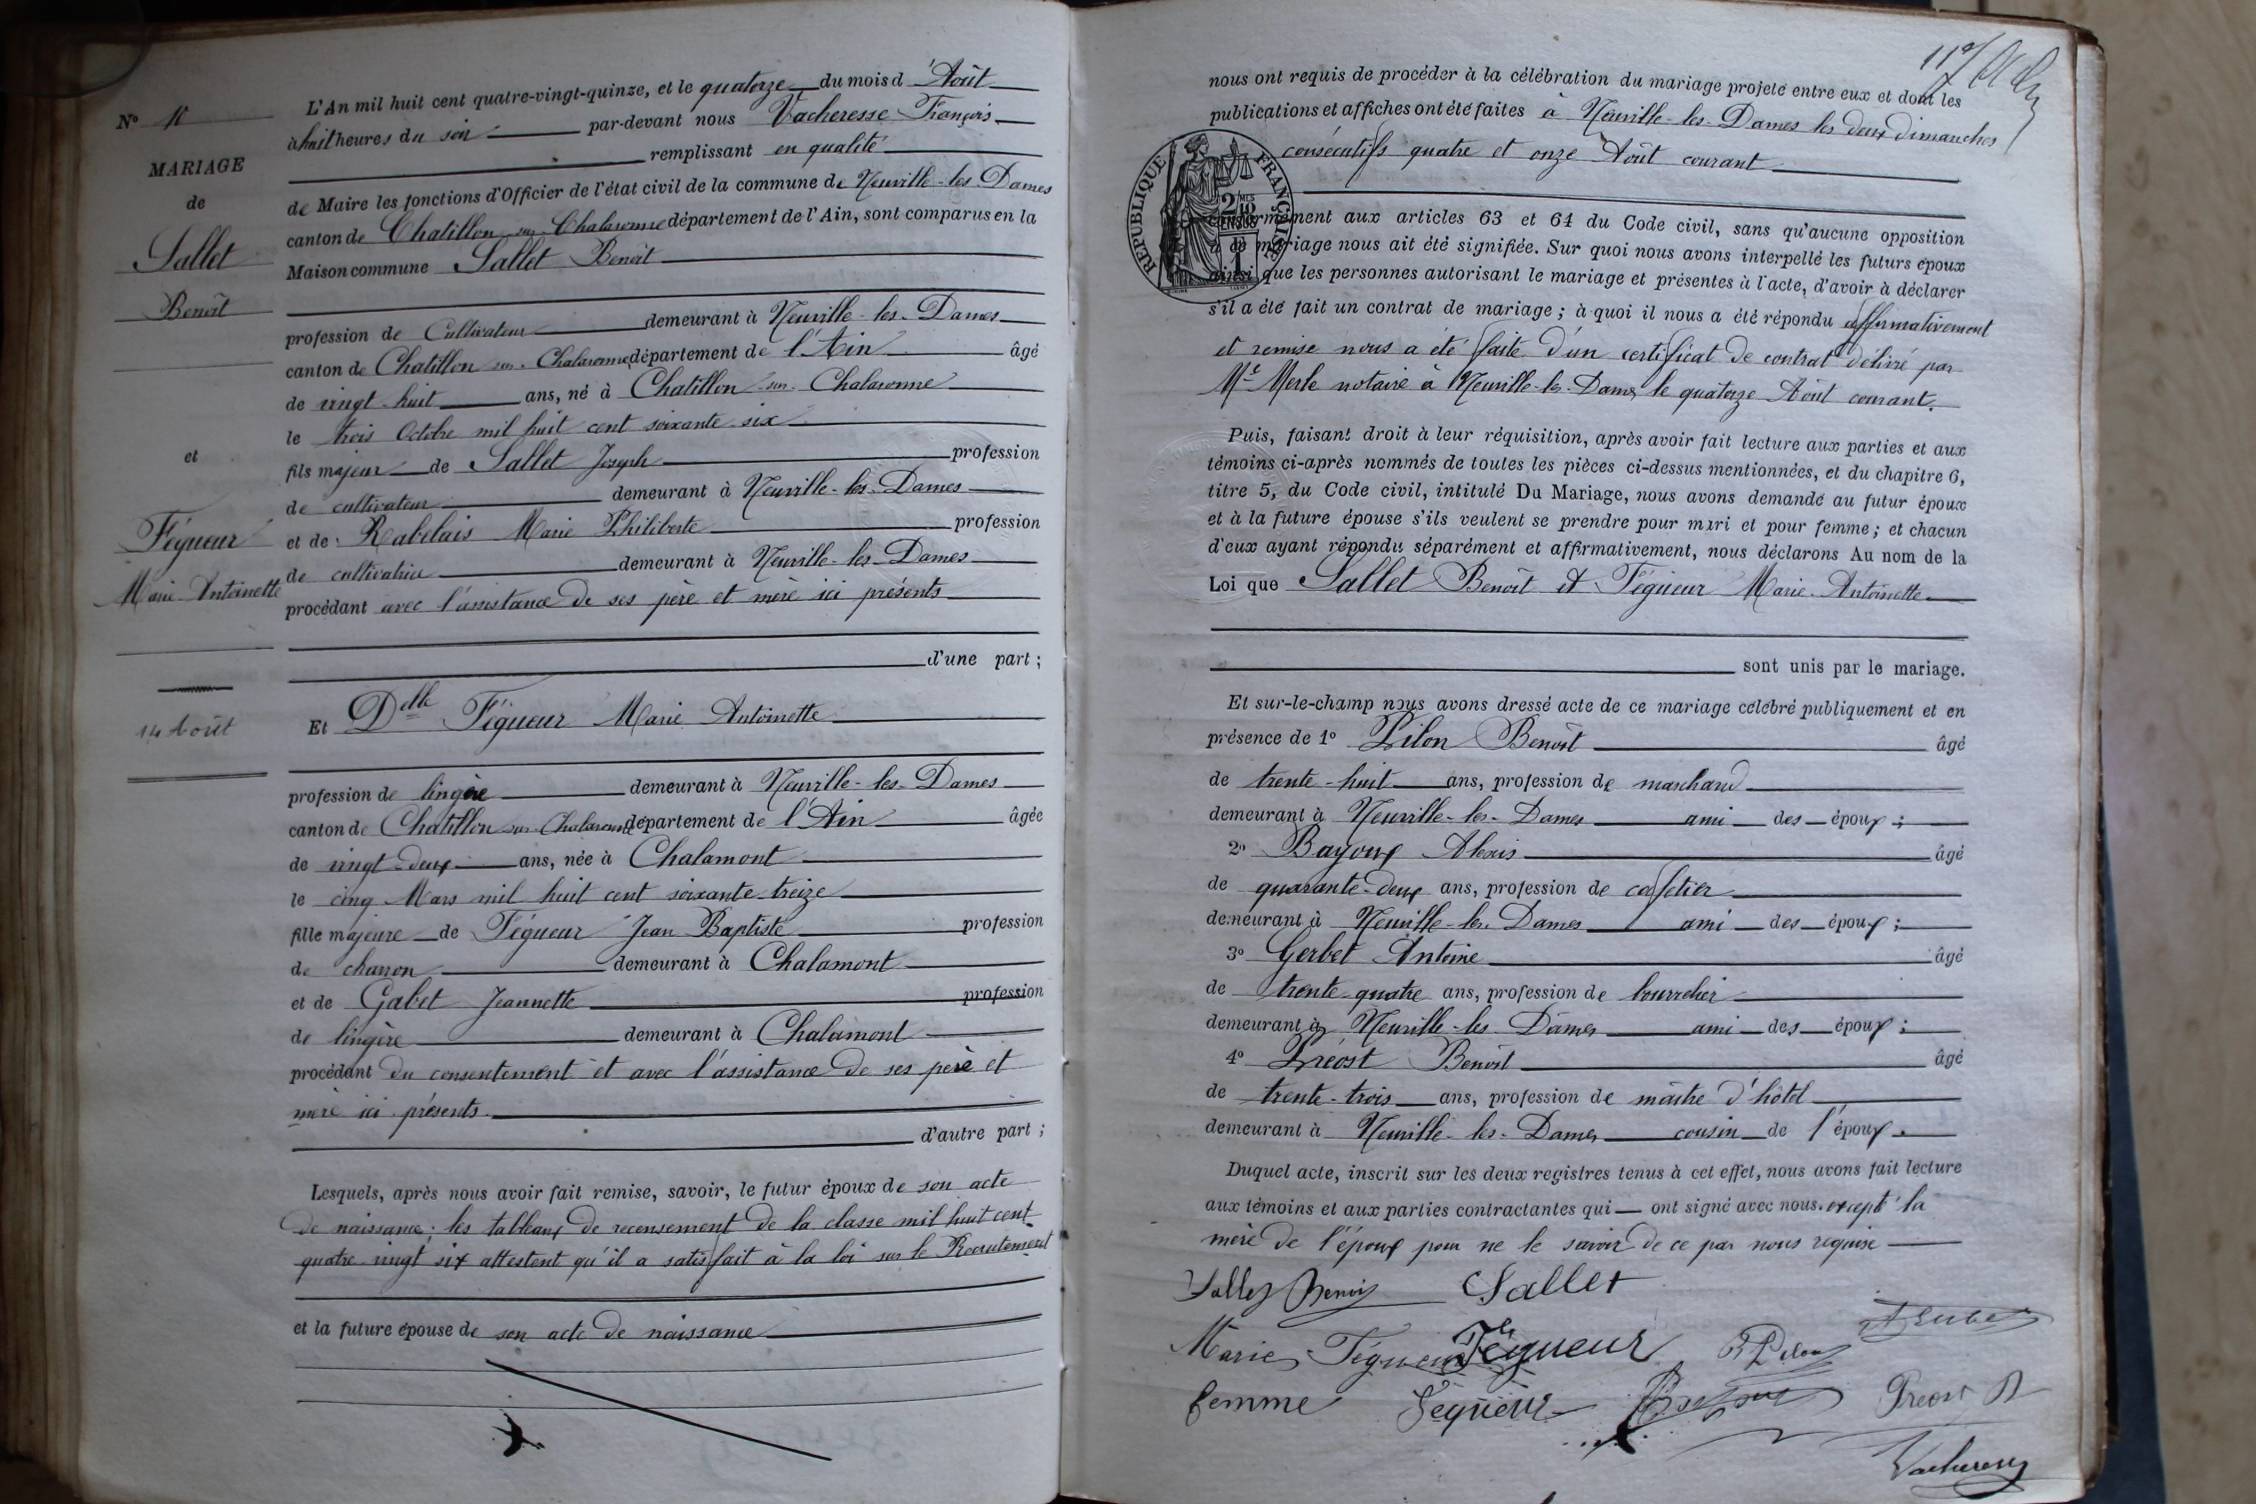 L'An mil huit cent quatre-vingt-quinze, et le quatorze du mois d'Août
à huit heures du soir par-devant nous Vacheresse François
remplissant en qualité
de Maire les fonctions d'Officier de l'état civil de la commune de Neuville-les-Dames
canton de Chatillon-sur-Chalaronne département de l'Ain, sont comparus en la
Maison commune Sallet Benoît
profession de Cultivateur demeurant à Neuville-les-Dames
canton de Chatillon-sur-Chalaronne département de l'Ain âgé
de vingt-huit ans, né à Chatillon-sur-Chalaronne
le trois Octobre mil huit cent soixante-six
fils majeur de Sallet Joseph profession
de cultivateur demeurant à Neuville-les-Dames
et de Rabelais Marie Philiberte profession
de cultivatrice demeurant à Neuville-les-Dames
procédant avec l'assistance de ses père et mère ici présents
d'une part ;
Et Delle Fégueur Marie Antoinette
profession de lingère demeurant à Neuville-les-Dames
canton de Chatillon-sur-Chalaronne département de l'Ain âgée
de vingt-deux ans, née à Chalamont
le cinq Mars mil huit cent soixante-treize
fille majeure de Fégueur Jean Baptiste profession
de charron demeurant à Chalamont
et de Gabet Jeannette profession
de lingère demeurant à Chalamont
procédant du consentement et avec l'assistance de ses père et
mère ici présents
d'autre part ;
Lesquels, après nous avoir fait remise, savoir, le futur époux de son acte
de naissance ; les tableaux de recensement de la classe mil huit cent
quatre-vingt six attestent qu'il a satisfait à la loi sur le Recrutement
et la future épouse de son acte de naissance
No 11
MARIAGE
de
Sallet
Benoît
et
Fégueur
Marie-Antoinette
14 Août
nous ont requis de procéder à la célébration du mariage projeté entre eux et dont les
publications et affiches ont été faites à Neuville-les-Dames les deux dimanches
consécutifs quatre et onze Août courant
REPUBLIQUE FRANÇAISE
conformément aux articles 63 et 64 du Code civil, sans qu'aucune opposition
à ce mariage nous ait été signifiée. Sur quoi nous avons interpellé les futurs époux
ainsi que les personnes autorisant le mariage et présentes à l'acte, d'avoir à déclarer
s'il a été fait un contrat de mariage ; à quoi il nous a été répondu affirmativement
et remise nous a été faite d'un certificat de contrat délivré par
Me Merle notaire à Neuville-les-Dames le quatorze Août courant.
Puis, faisant droit à leur réquisition, après avoir fait lecture aux parties et aux
témoins ci-après nommés de toutes les pièces ci-dessus mentionnées, et du chapitre 6,
titre 5, du Code civil, intitulé Du Mariage, nous avons demandé au futur époux
et à la future épouse s'ils veulent se prendre pour mari et pour femme ; et chacun
d'eux ayant répondu séparément et affirmativement, nous déclarons Au nom de la
Loi que Sallet Benoît et Fégueur Marie-Antoinette
sont unis par le mariage.
Et sur-le-champ nous avons dressé acte de ce mariage célébré publiquement et en
présence de 1o Pilon Benoît âgé
de trente-huit ans, profession de marchand
demeurant à Neuville-les-Dames ami des époux ;
2o Bayoux Alexis âgé
de quarante-deux ans, profession de cafetier
demeurant à Neuville-les-Dames ami des époux ;
3o Gerbet Antoine âgé
de trente-quatre ans, profession de bourrelier
demeurant à Neuville-les-Dames ami des époux ;
4o Préost Benoît âgé
de trente-trois ans, profession de maître d'hôtel
demeurant à Neuville-les-Dames cousin de l'époux.
Duquel acte, inscrit sur les deux registres tenus à cet effet, nous avons fait lecture
aux témoins et aux parties contractantes qui ont signé avec nous. excepté la
mère de l'époux pour ne le savoir de ce par nous requise
Sallet Benoit Sallet
Marie Fégueur Fégueur B Pilon
femme Fégueur Préost B
Vacheresse